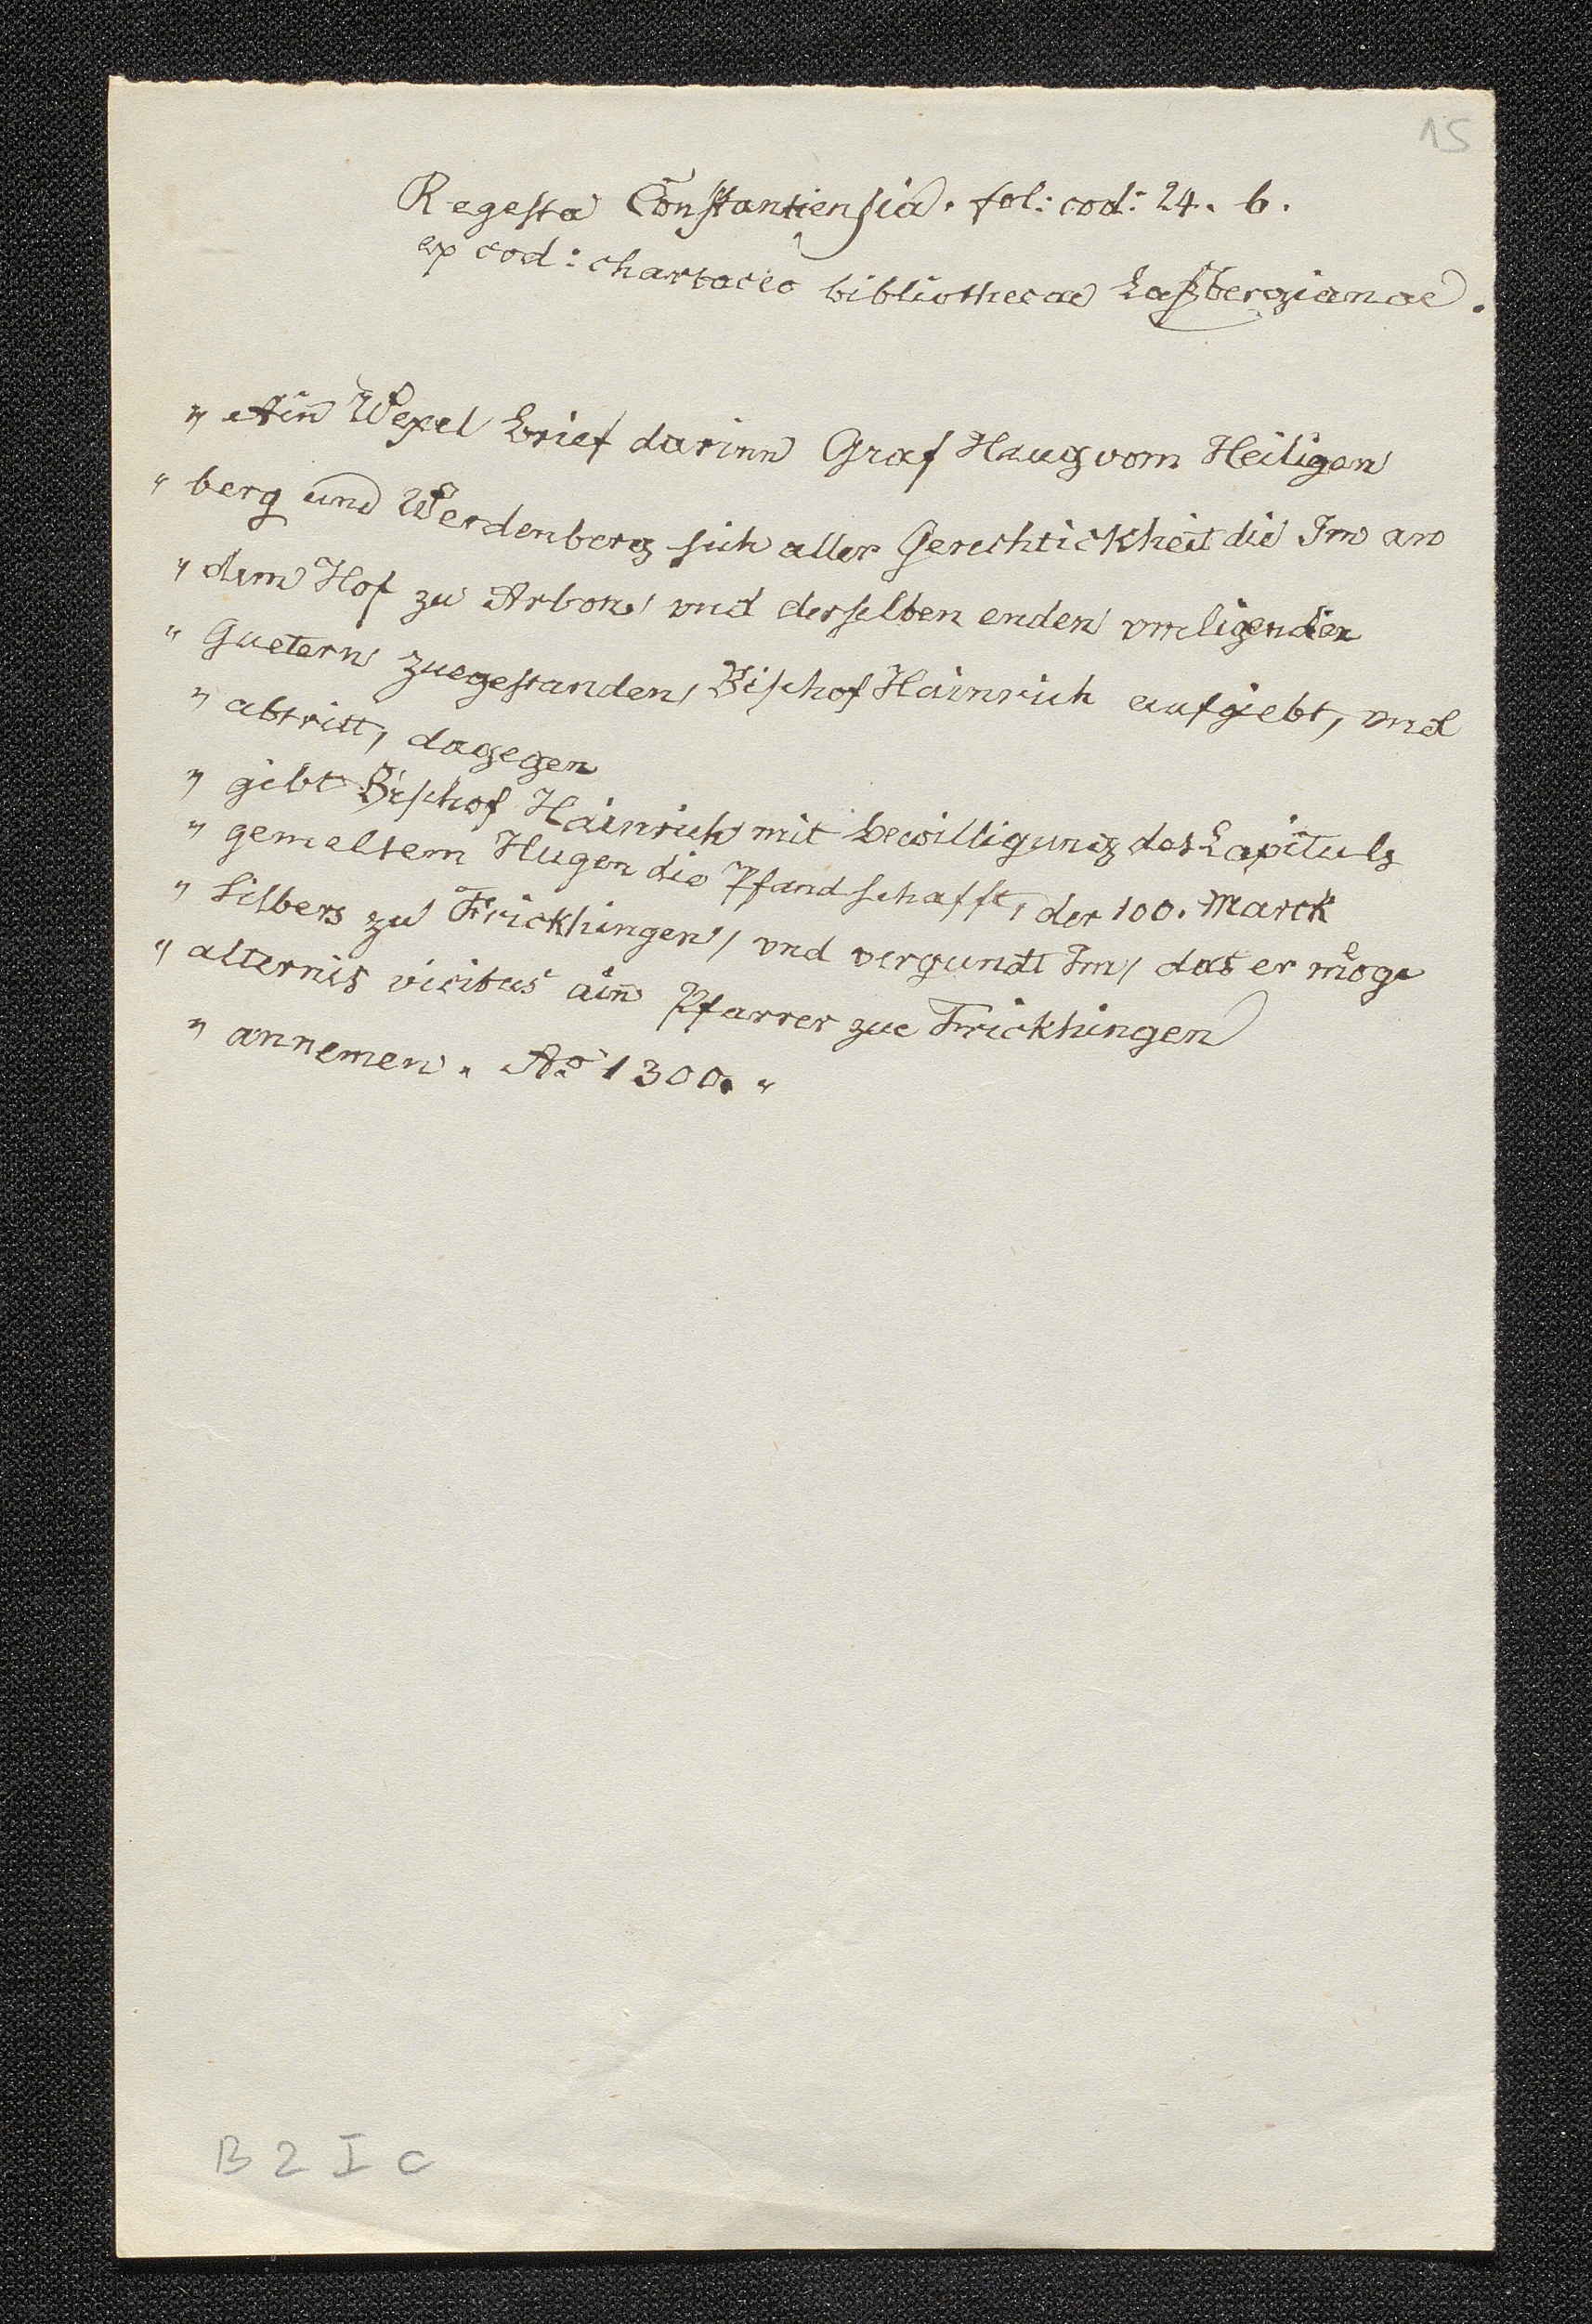 15
Regesta Constantiensia. fol: cod: 24. b.
ex cod: chartaceo bibliothecae Laßbergianae.
„ Ain Wexel brief darinn Graf Haug vom Heiligen
„ berg und Werdenberg sich aller Gerechtickheit die Im an
„ dem Hof zu Arbon, vnd derselben enden vmligenden
„ Guetern zuegestanden, Bischof Hainrich aufgiebt, vnd
„ abtritt, dagegen
„ gibt Bischof Hainrich mit bewilligung des Capituls
„ gemeltem Hugen die Pfandschafft, der 100. Marck
„ Silbers zu Frickhingen, vnd vergundt Im, das er moͤge
„ alternis vicibus ain̄ Pfarrer zue Frickhingen
„ annemen. Ao. 1300. “
B 2 I C